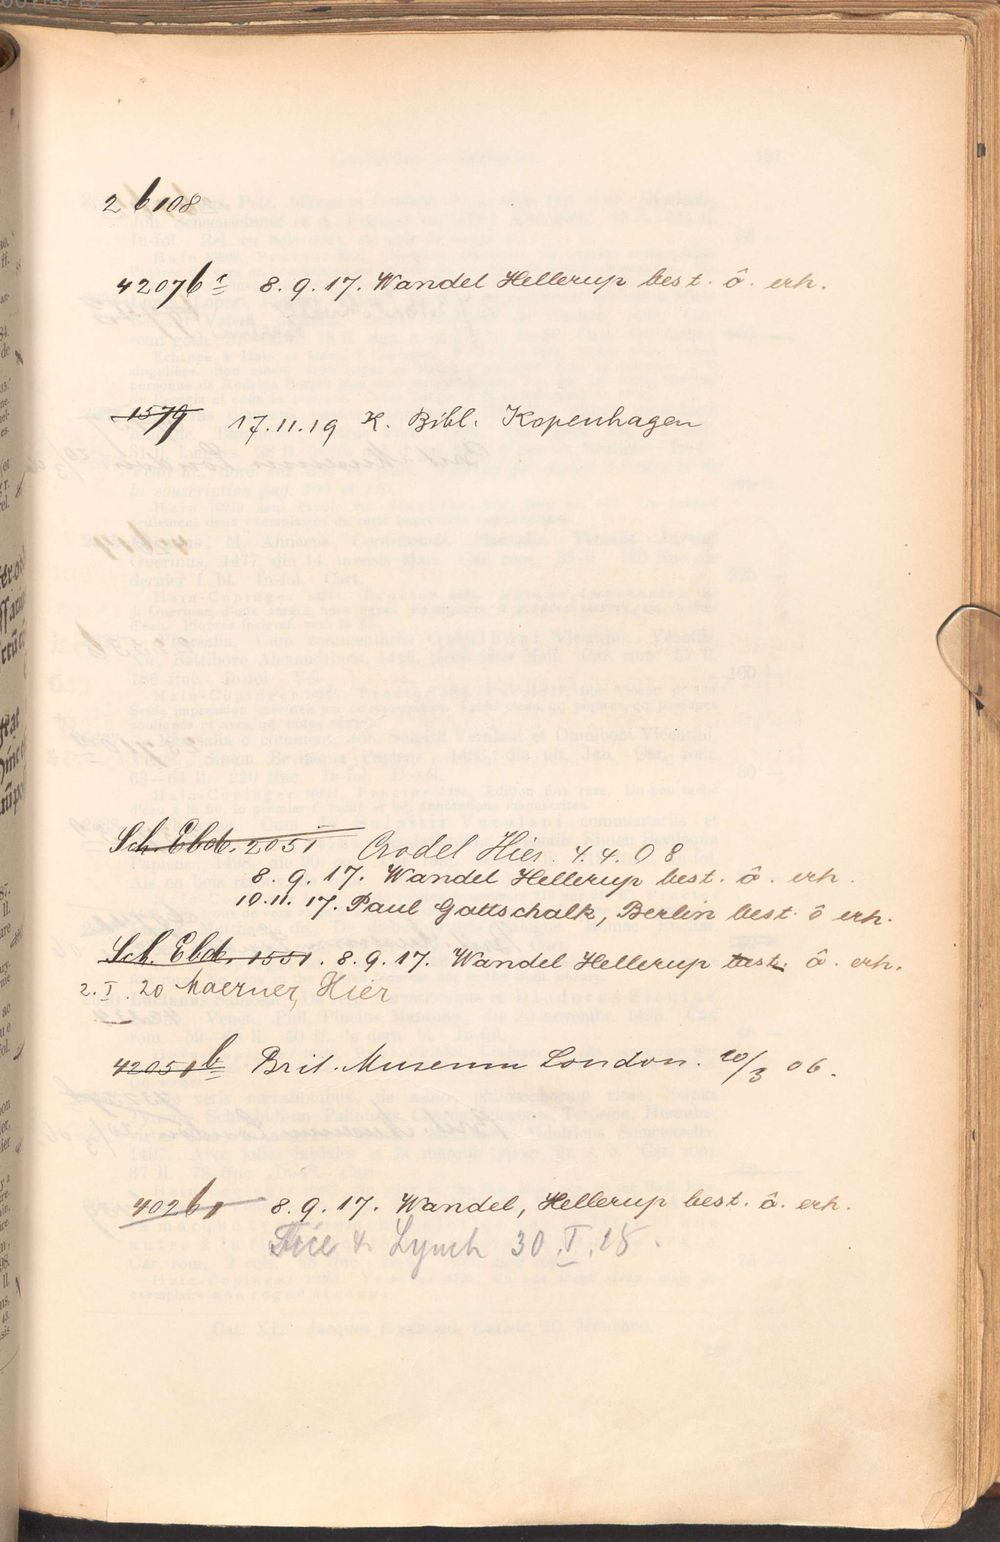 2 b 108
4207 b 1 8. 9. 17. Wandel Hellerup best. ô. erh.
1579 17.11.19 K. Bibl. Kopenhagen
Sch. Ebde. 2051 Crodel Hier. 4. 4. 08
8. 9. 17. Wandel Hellerup best. ô. erh.
10. 11. 17. Paul Gottschalk, Berlin best. ô erh.
Sch. Ebde. 1551. 8. 9. 17. Wandel Hellerup best. ô. erh.
2. I. 20 Maerner, Hier
42051 b Brit. Museum London. 20/3 06.
402 b 1 8. 9. 17. Wandel, Hellerup best. ô. erh.
& Lynch 30. I. 15.